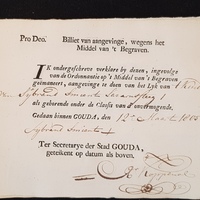 Pro Deo. Billiet van aangevinge, wegens het
Middel van 't Begraven.
IK ondergeschreve verklere by dezen, ingevolge
van de Ordonnantie op 't Middel van 't Begraven
geëmaneert, aangevinge te doen van het Lyk van 't Kind
van Sybrand
als gehorende onder de Classis van d'onvermogende.
Gedaan binnen GOUDA, den 12e
Sybrand
Ter Secretarye der Stad GOUDA,
geteikent op datum als boven.